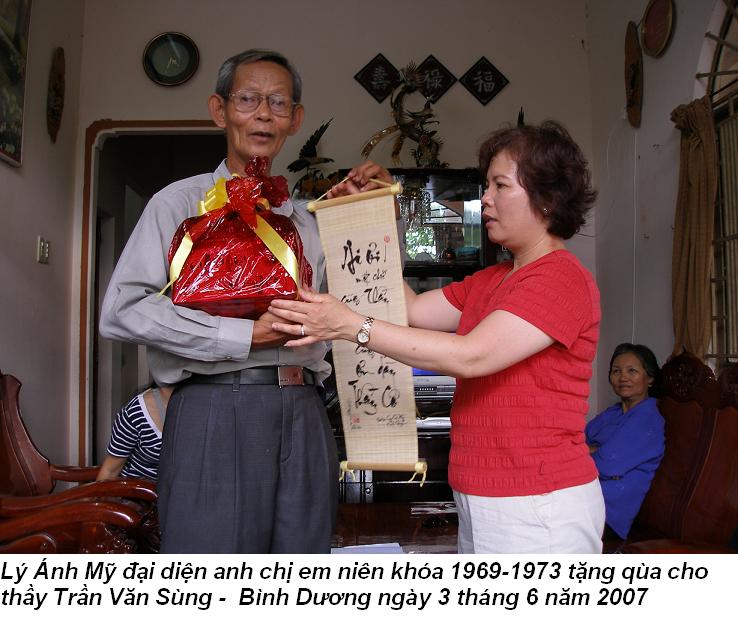 壽 祿 福
một chữ
cũng Thầy
Lý Ánh Mỹ đại diện anh chị em niên khóa 1969-1973 tặng qùa cho
thầy Trần Văn Sùng - Bình Dương ngày 3 tháng 6 năm 2007